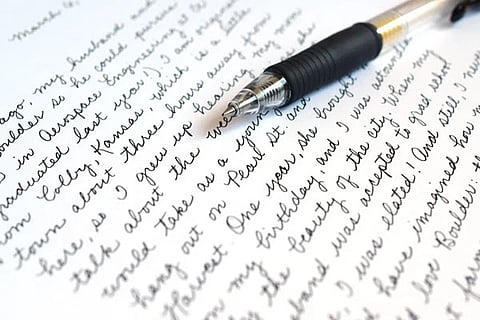 March 6,
ago, my husband and
Boulder so he could pursue
S in Aerospace Engineering at
graduated last year!) I am origina
from Colby, Kansas, which is a little
town about three hours away from
here, so I grew up hearing my mom
talk about the
would take as a young
hang out on Pearl St. and
Harvest. One year, she brought
on my birthday, and I was astounded
by the beauty of the city. When my
husband was accepted to grad school
I was elated! And still I never
have imagined how m
love Boulder